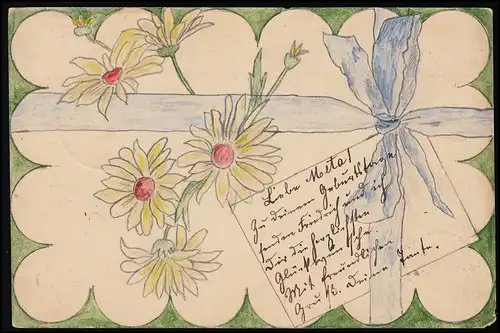 Liebe Meta!
Zu Deinem Geburtstage
senden Friedrich und ich
Dir die herzlichsten
Glückwünsche.
Mit freundlichem
Gruß. Deine Tante.